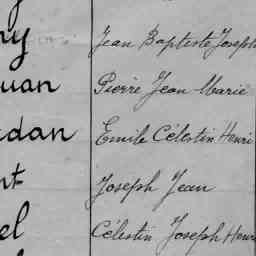 ny Jean Baptiste Joseph
uan Pierre Jean Marie
dan Emile Célestin Henri
nt Joseph Jean
el Célestin Joseph Henri